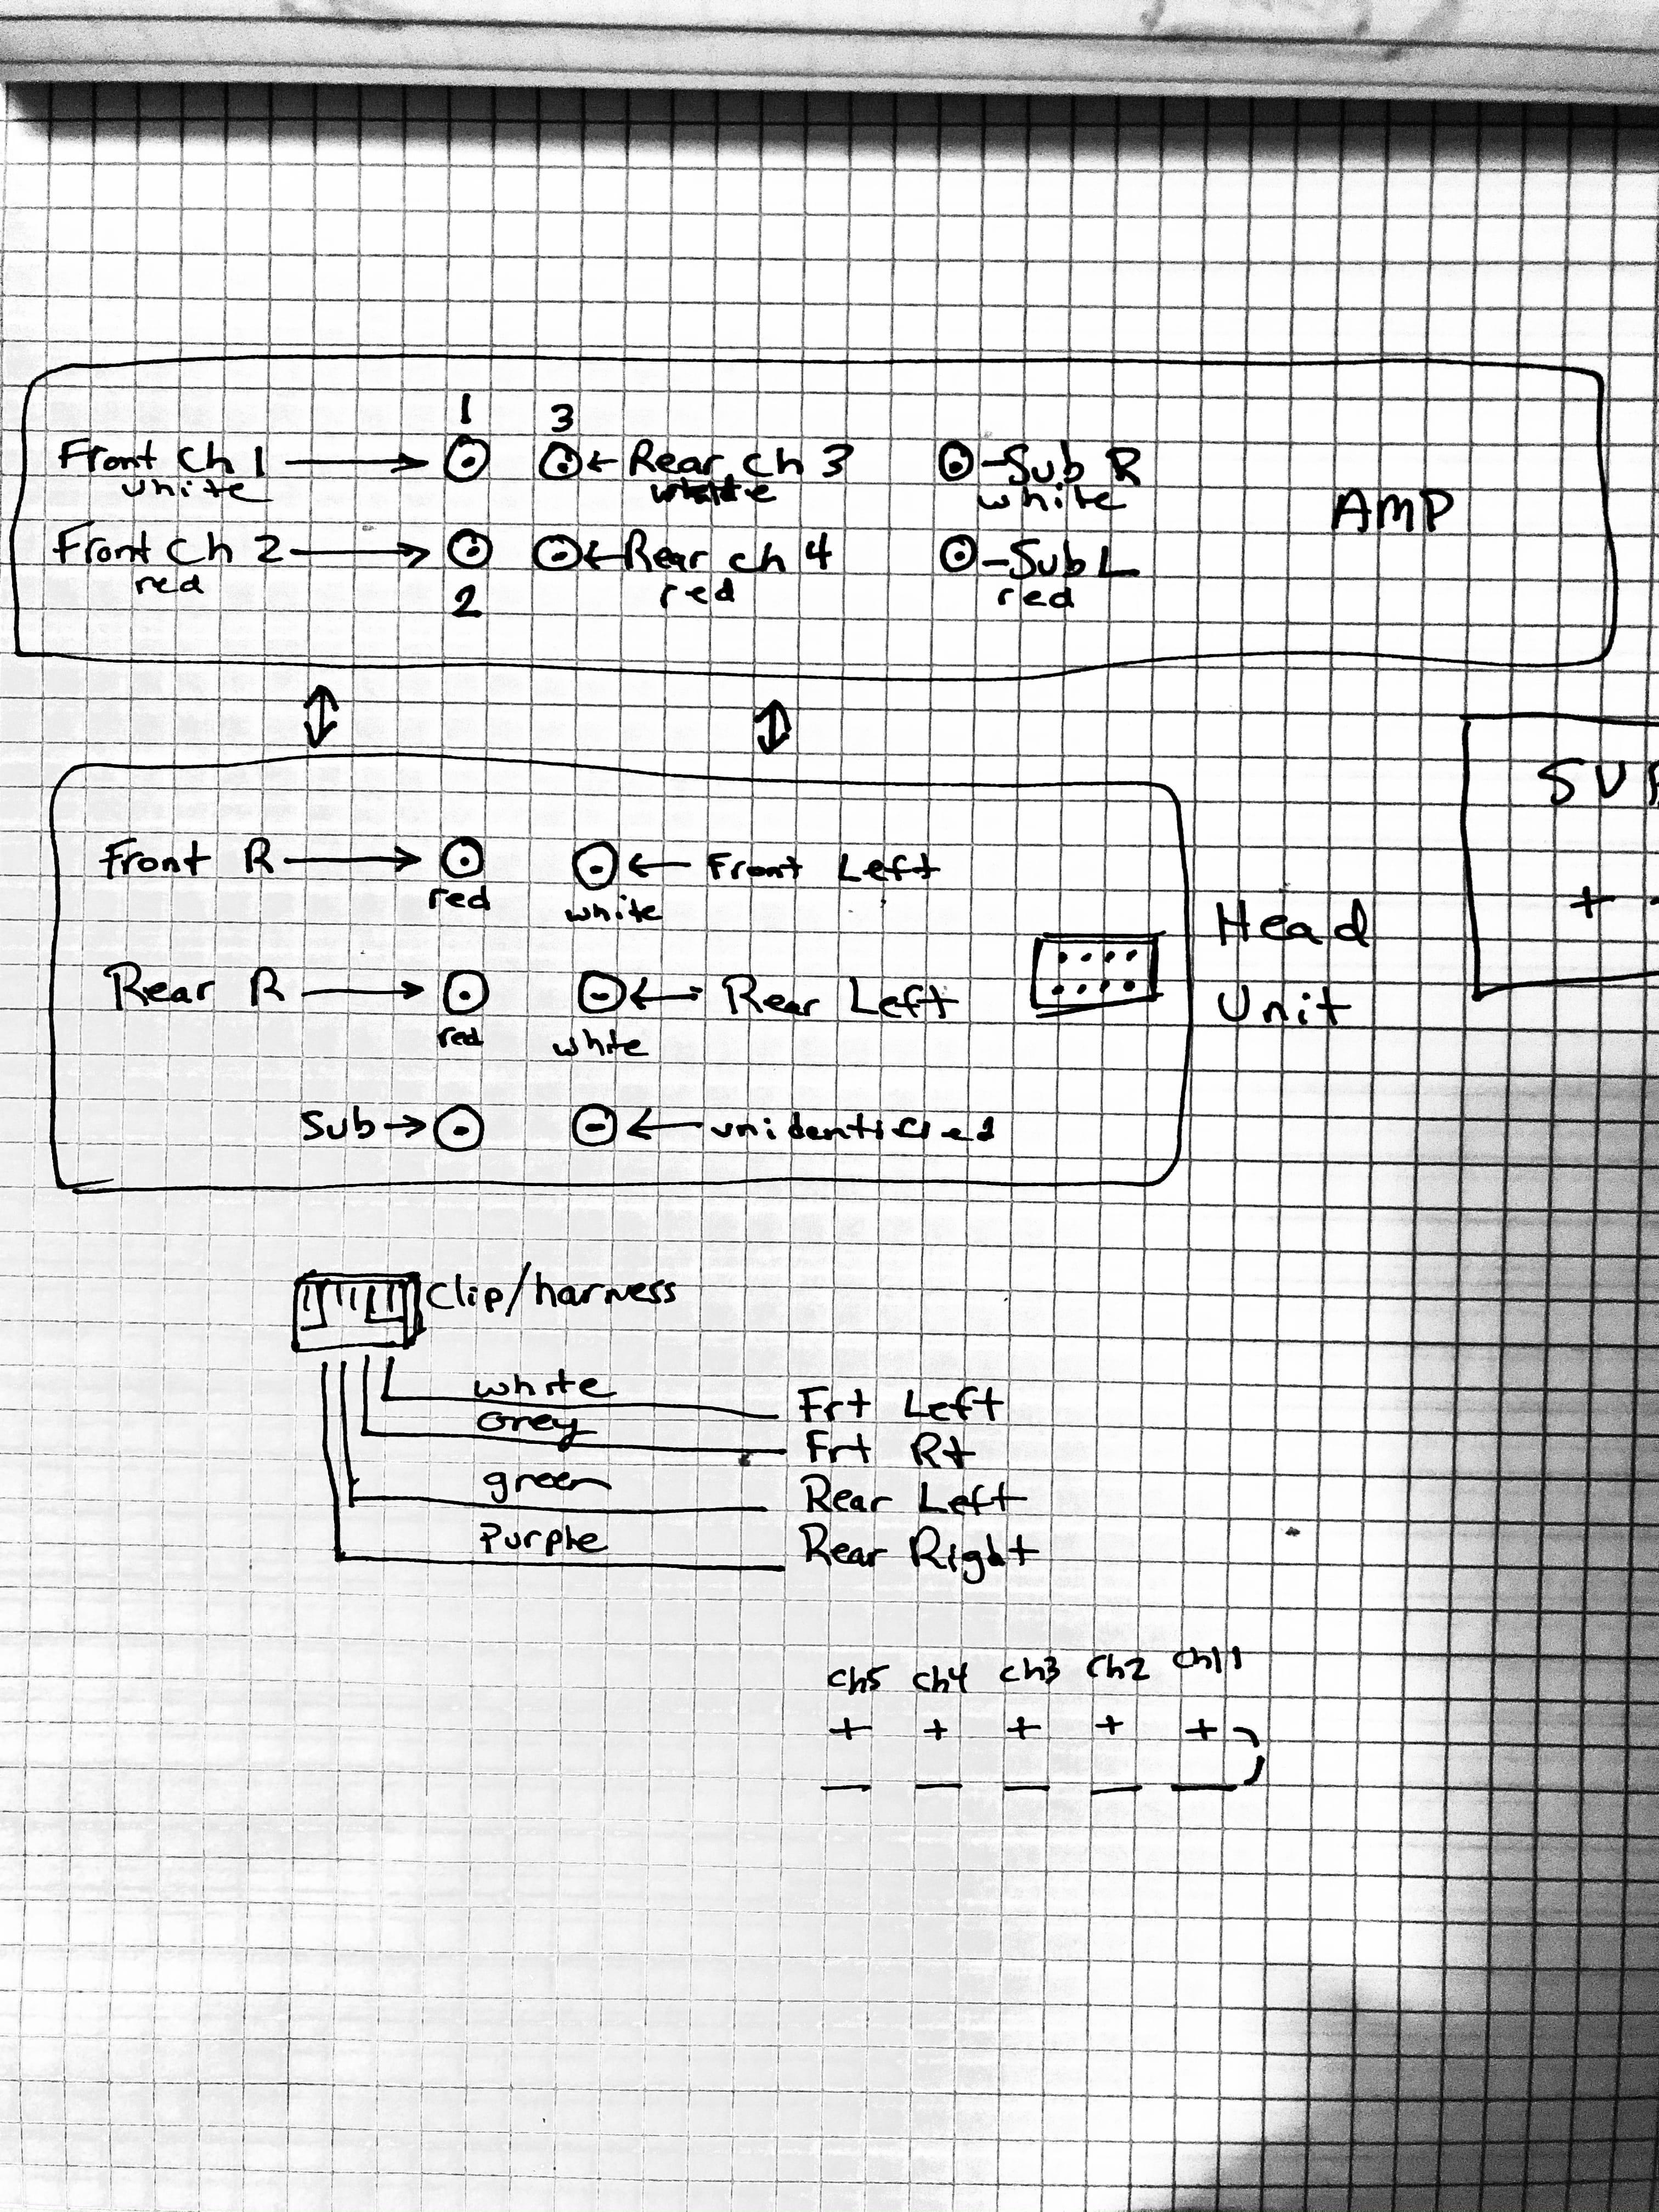 1 3
Front Ch 1 Rear ch 3 Sub R
white white white
AMP
Front Ch 2 Rear ch 4 Sub L
red red red
2
Front R Front Left
red white
Head
Unit
Rear R Rear Left
red white
Sub unidentified
+
Clip/harness
white Frt Left
Grey Frt Rt
green Rear Left
Purple Rear Right
ch5 ch4 ch3 ch2 ch11
+ + + + +
- - - - -